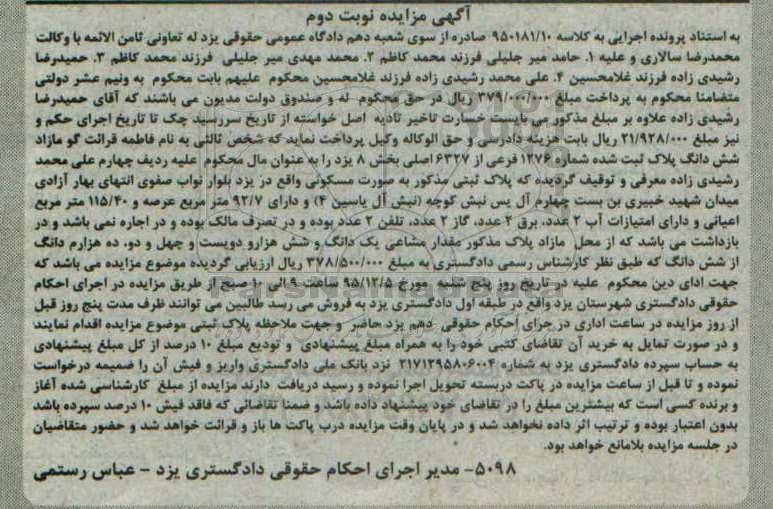 آگهی مزایده نوبت دوم
به استناد پرونده اجرایی به کلاسه ۹۵۰۱۸۱/۱۰ صادره از سوی شعبه دهم دادگاه عمومی حقوقی یزد له تعاونی ثامن الائمه با وکالت
محمدرضا سالاری و علیه ۱. حامد میر جلیلی فرزند محمد کاظم ۲. محمد مهدی میر جلیلی فرزند محمد کاظم ۳. حمیدرضا
رشیدی زاده فرزند غلامحسین ۴. علی محمد رشیدی زاده فرزند غلامحسین محکوم علیهم بابت محکوم به ونیم عشر دولتی
متضامنا محکوم به پرداخت مبلغ ۳۷۹/۰۰۰/۰۰۰ ریال در حق محکوم له و صندوق دولت مدیون می باشند که آقای حمیدرضا
رشیدی زاده علاوه بر مبلغ مذکور می بایست خسارت تاخیر تادیه اصل خواسته از تاریخ سررسید چک تا تاریخ اجرای حکم و
نیز مبلغ ۲۱/۹۲۸/۰۰۰ ریال بابت هزینه دادرسی و حق الوکاله وکیل پرداخت نماید که شخص ثالثی به نام فاطمه قرائت گو مازاد
شش دانگ پلاک ثبت شده شماره ۱۲۷۶ فرعی از ۶۳۲۷ اصلی بخش ۸ یزد را به عنوان مال محکوم علیه ردیف چهارم علی محمد
رشیدی زاده معرفی و توقیف گردیده که پلاک ثبتی مذکور به صورت مسکونی واقع در یزد بلوار نواب صفوی انتهای بهار آزادی
میدان شهید خبیری بن بست چهارم آل یس نبش کوچه (نبش آل یاسین ۴) و دارای ۹۲/۷ متر مربع عرصه و ۱۱۵/۴۰ متر مربع
اعیانی و دارای امتیازات آب ۲ عدد، برق ۲ عدد، گاز ۲ عدد، تلفن ۲ عدد بوده و در تصرف مالک بوده و در اجاره نمی باشد و در
بازداشت می باشد که از محل مازاد پلاک مذکور مقدار مشاعی یک دانگ و شش هزارو دویست و چهل و دو، ده هزارم دانگ
از شش دانگ که طبق نظر کارشناس رسمی دادگستری به مبلغ ۳۷۸/۵۰۰/۰۰۰ ریال ارزیابی گردیده موضوع مزایده می باشد که
جهت ادای دین محکوم علیه در تاریخ روز پنج شنبه مورخ ۹۵/۱۲/۵ ساعت ۹ الی ۱۰ صبح از طریق مزایده در اجرای احکام
حقوقی دادگستری شهرستان یزد واقع در طبقه اول دادگستری یزد به فروش می رسد طالبین می توانند ظرف مدت پنج روز قبل
از روز مزایده در ساعت اداری در جرای احکام حقوقی دهم یزد حاضر و جهت ملاحظه پلاک ثبتی موضوع مزایده اقدام نمایند
و در صورت تمایل به خرید آن تقاضای کتبی خود را به همراه مبلغ پیشنهادی و تودیع مبلغ ۱۰ درصد از کل مبلغ پیشنهادی
به حساب سپرده دادگستری یزد به شماره ۲۱۷۱۲۹۵۸۰۶۰۰۴ نزد بانک ملی دادگستری واریز و فیش آن را ضمیمه درخواست
نموده و تا قبل از ساعت مزایده در پاکت دربسته تحویل اجرا نموده و رسید دریافت دارند مزایده از مبلغ کارشناسی شده آغاز
و برنده کسی است که بیشترین مبلغ را در تقاضای خود پیشنهاد داده باشد و ضمنا تقاضائی که فاقد فیش ۱۰ درصد سپرده باشد
بدون اعتبار بوده و ترتیب اثر داده نخواهد شد و در پایان وقت مزایده درب پاکت ها باز و قرائت خواهد شد و حضور متقاضیان
در جلسه مزایده بلامانع خواهد بود.
۵۰۹۸- مدیر اجرای احکام حقوقی دادگستری یزد - عباس رستمی